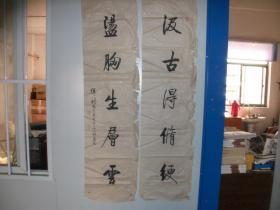 汲古得脩綆
盪胸生層雲